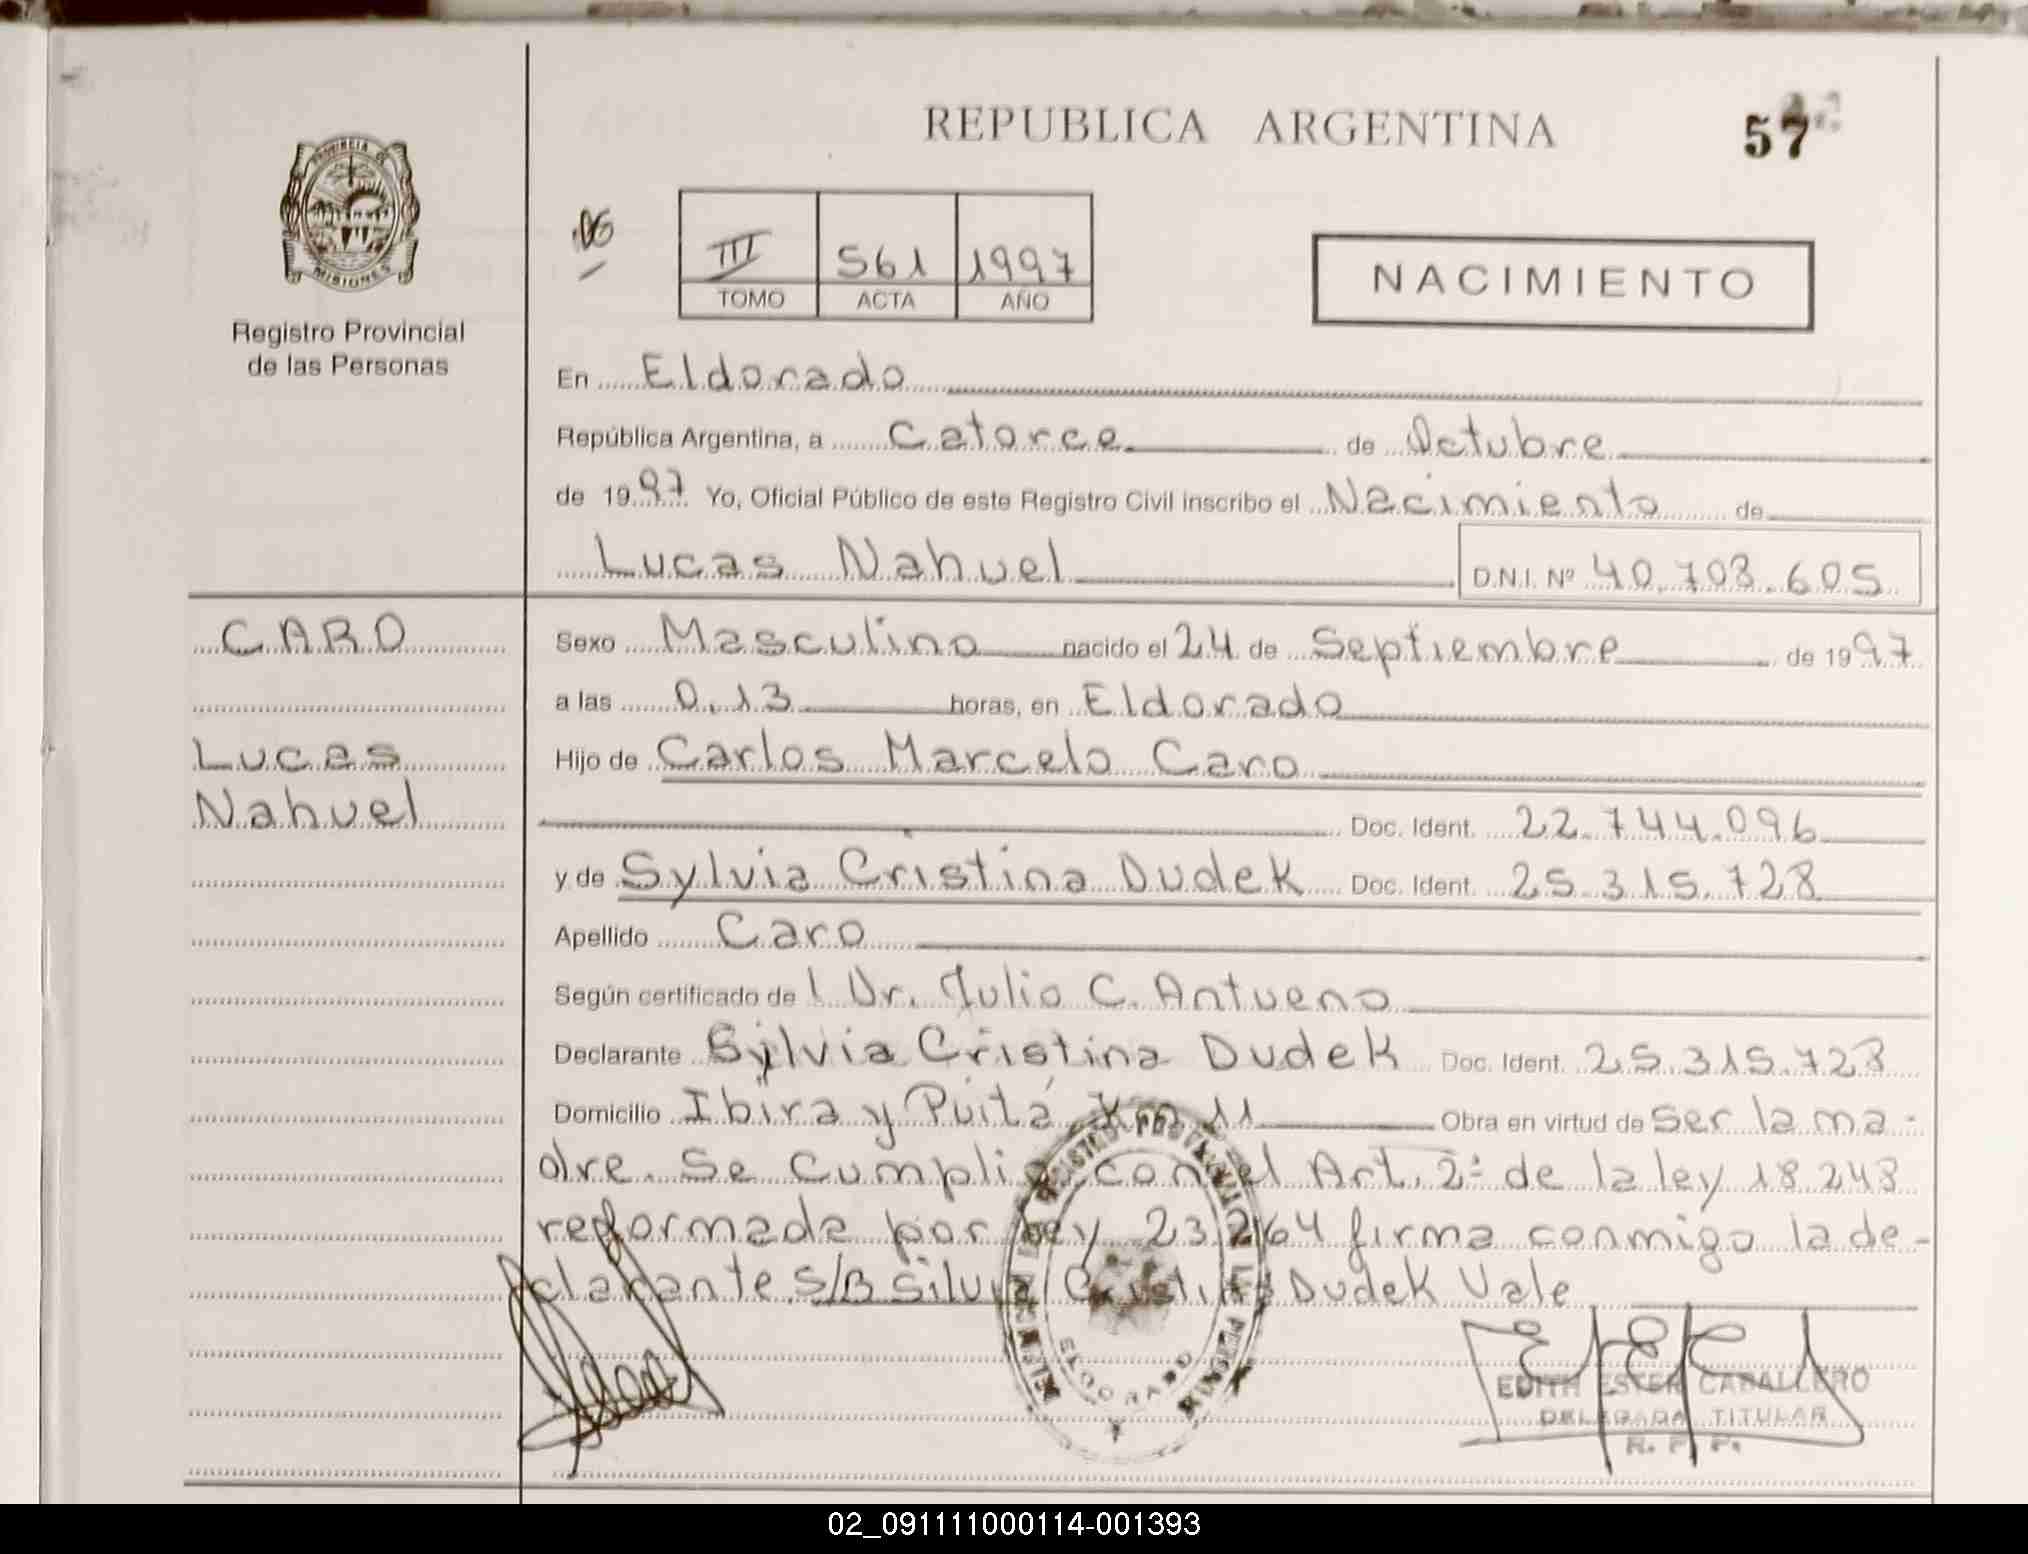 REPUBLICA ARGENTINA
57
PROVINCIA DE
MISIONES
Registro Provincial
de las Personas
III 561 1997
TOMO ACTA AÑO
NACIMIENTO
En Eldorado
República Argentina, a Catorce de Octubre
de 1997 Yo, Oficial Público de este Registro Civil inscribo el Nacimiento de
Lucas Nahuel D.N.I. Nº 40.703.605
CARO
Lucas
Nahuel
Sexo Masculino nacido el 24 de Septiembre de 1997
a las 0,13 horas, en Eldorado
Hijo de Carlos Marcelo Caro
Doc. Ident. 22.744.096
y de Sylvia Cristina Dudek Doc. Ident. 25.315.728
Apellido Caro
Según certificado de l Dr. Julio C. Antueno
Declarante Sylvia Cristina Dudek Doc. Ident. 25.315.728
Domicilio Ibira y Puitá Km 11 Obra en virtud de Ser la ma-
dre. Se cumplio con el Art. 2º de la ley 18.248
reformada por ley 23.264 firma conmigo la de-
clarante S/B Silvia Cristina Dudek Vale
ELDORADO
EDITH ESTER CABALLERO
DELEGADA TITULAR
R. P. P.
02_091111000114-001393